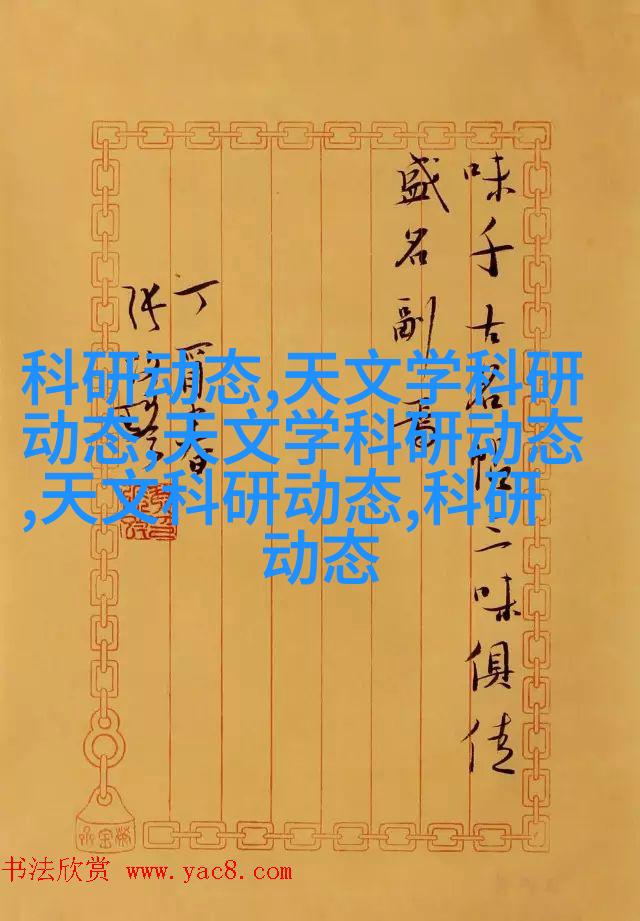 味千古名帖二味俱佳
盛名副焉
丁酉春
科研动态,天文学科研
动态,天文学科研动态
,天文科研动态,科研
动态
书法欣赏 www.yac8.com